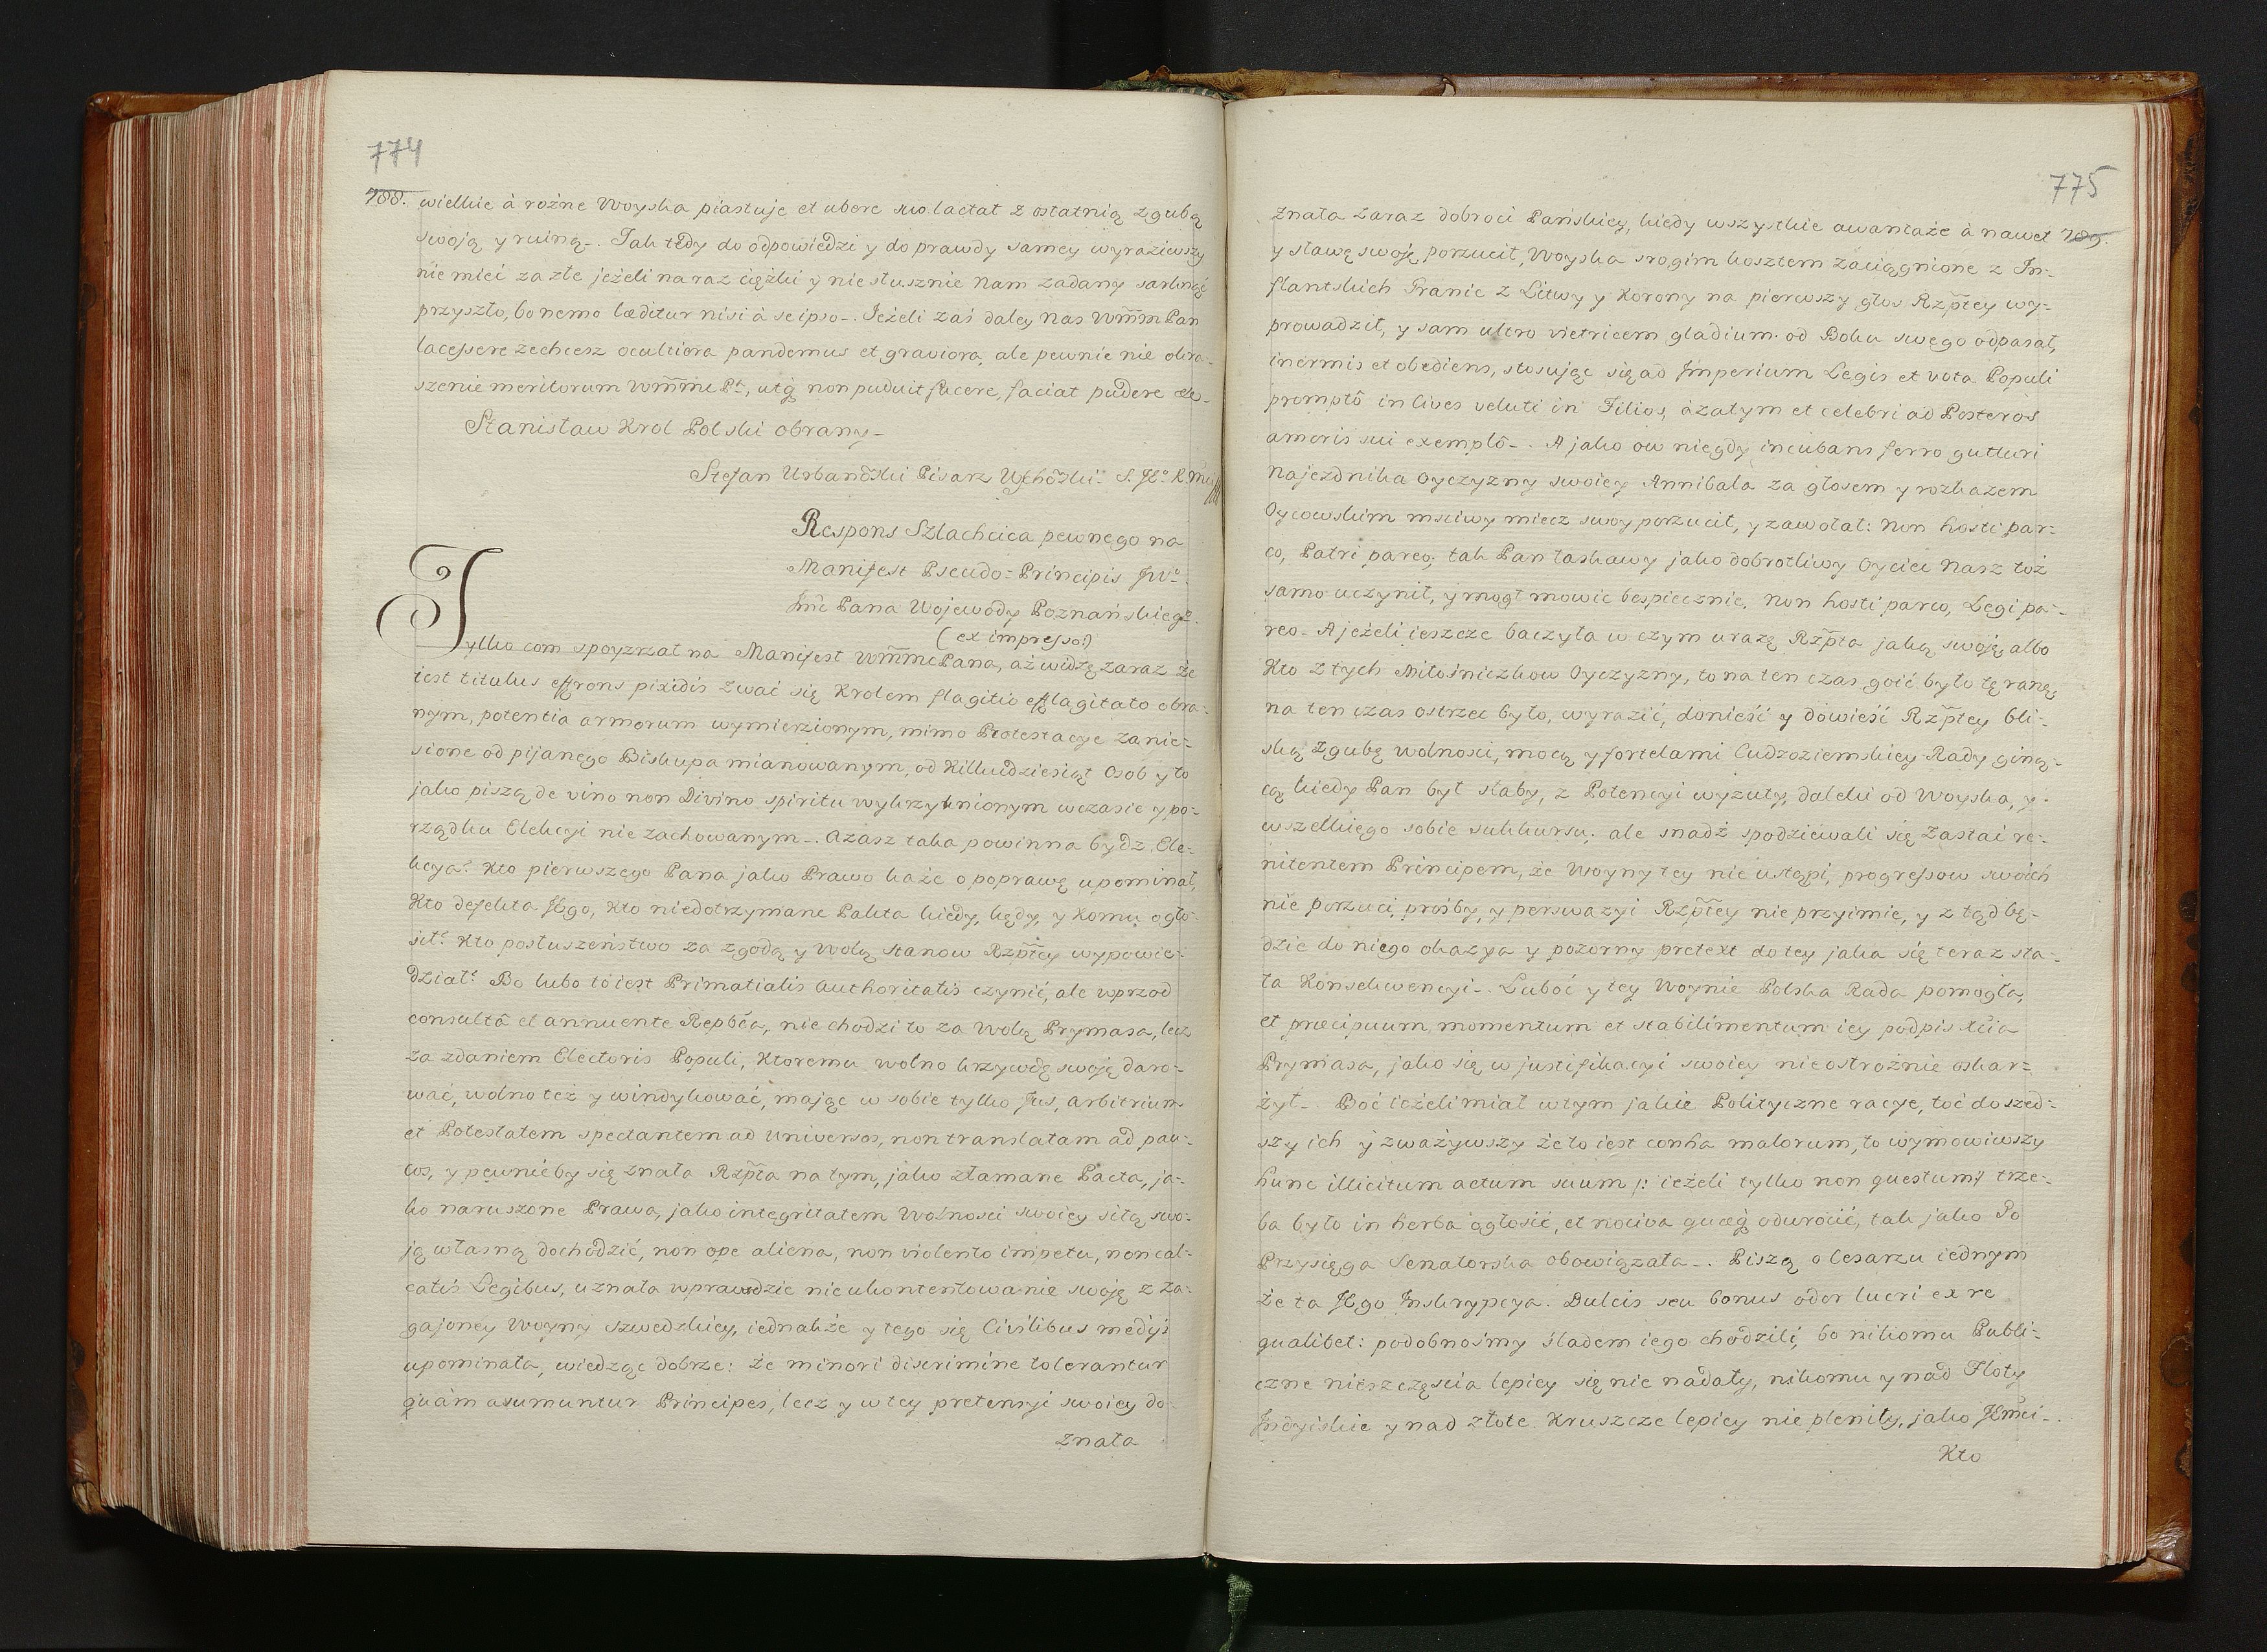 774
788.
wielkie à rożne Woyska piastuje et ubere suo lactat z ostatnią zgubą
swoją y ruiną-. Tak tedy do odpowiedzi y do prawdy samey wyraziwszy
nie mieć za złe jeżeli na raz ciężki y niesłusznie Nam zadany sarknąć
przyszło, bo nemo læditur nisi à se ipso-. Jeżeli zaś daley Nas Wm̃m Pan
lacessere zechcesz ocultiora pandemus et graviora, ale pewnie nie okra-
szenie meritorum Wm̃me Pa, utq non puduit facere, faciat pudere
Stanisław Krol Polski obrany-
Stefan Urbański Pisarz
Respons Szlachcica pewnego na
Manifest Pseudo-Principis JWo
Jmć Pana Wojewody Poznańskiego.
(ex impresso:)
Tylko com spoyzrzał na Manifest Wm̃mc Pana, aż widzę zaraz że
iest titulus effrons pixidis zwać się Krolem flagitio efflagitato obra-
nym, potentia armorum wymierzionym, mimo Protestacye zanie-
sione od pijanego Biskupa mianowanym, od Kilkudziesiąt Osob y to
jako piszą de vino non Divino spiritu wykrzyknionym w czasie y po-
rządku Elekcyi nie zachowanym-. Azasz taka powinna bydz Ele-
kcya? Kto pierwszego Pana jako Prawo każe o poprawę upominał,
Kto defekta JKgo, Kto niedotrzymane Pakta kiedy, kędy, y Komu ogło-
sił? Kto posłuszeństwo za zgodą y Wolą Stanow Rzpt̃ey wypowie-
dział? Bo lubo to iest Primatialis Authoritatis czynić, ale wprzod
consultâ et annuente Repbca, nie chodzi to za Wolą Prymasa, lecz
za zdaniem Electoris Populi, Ktoremu wolno krzywdę swoję daro-
wać, wolno też y windykować, mając w sobie tylko Jus, arbitrium
et Potestatem spectantem ad Universos, non translatam ad pau-
cos, y pewnieby się znała Rzpta na tym, jako złamane Pacta, ja-
ko naruszone Prawa, jako integritatem Wolnosci swoiey siłą swo-
ją własną dochodzić, non ope aliena, non violento impetu, non cal-
catis Legibus, uznała wprawdzie nieukontentowanie swoję z za-
gajoney Woyny Szwedzkiey, iednakże y tego się Civilibus medijs
upominała, wiedząc dobrze: że minori discrimine tolerantur
quàm asumuntur Principes, lecz y w tey pretensyi swoiey do-
znała
775
789.
znała zaraz dobroci Pańskiey, kiedy wszystkie awantaże à nawet
y sławę swoję porzucił, Woyska srogim kosztem zaciągnione z In-
flantskich Granic z Litwy y Korony na pierwszy głos Rzpt̃ey wy-
prowadził, y sam ultro victricem gladium od Boku swego odpasał,
inermis et obediens, stosując się ad Imperium Legis et vota Populi
promptô in Cives veluti in Filios, à zatym et celebri ad Posteros
amoris sui exemplô-. A jako ow niegdy incubans ferro gutturi
Najezdnika Oyczyzny swoiey Annibala za głosem y rozkazem
Oycowskim msciwy miecz swoy porzucił, y zawołał: Non hosti par-
co, Patri pareo; tak Pan łaskawy jako dobrotliwy Oyciec Nasz toż
samo uczynił, y mogł mowić bespiecznie, non hosti parco, Legi pa-
reo- A jeżeli ieszcze baczyła w czym urazę Rzpta jaką swoję albo
Kto z tych Miłośniczkow Oyczyzny, to na ten czas goić było tę ranę,
na ten czas ostrzec było, wyrazić, donieść y dowieść Rzpt̃ey bli-
ską zgubę wolnosci, mocą y fortelami Cudzoziemskiey Rady giną-
cą kiedy Pan był słaby, z Potencyi wyzuty, daleki od Woyska, y
wszelkiego sobie sukkursu; ale snadź spodziewali się zastać re-
nitentem Principem, że Woyny tey nie ustąpi, progressow swoich
nie porzuci, prośby y perswazyi Rzpt̃ey nie przyimie, y z tąd bę-
dzie do niego okazya y pozorny pretext do tey jaka się teraz sta-
ła Konsekwencyi-. Luboć y tey Woynie Polska Rada pomogła,
et præcipuum momentum et stabilimentum iey podpis Xcia
Prymasa, jako się w justifikacyi swoiey nieostrożnie oskar-
żył- Boć ieżeli miał w tym jakie Polityczne racye, toć doszed-
szy ich y zważywszy że to iest concha malorum, to wymowiwszy
hunc illicitum actum suum /: ieżeli tylko non questum:/ trze-
ba było in herba ogłosić, et nociva quæq odwrocić, tak jako Go
Przysięga Senatorska obowiązała-. Piszą o Cesarzu iednym
że ta JKgo Inskrypcya. Dulcis seu bonus odor lucri ex re
qualibet: podobnośmy śladem iego chodzili, bo nikomu Publi-
czne nieszczęscia lepiey się nie nadały, nikomu y nad Floty
Indyiskie y nad złote Kruszcze lepiey nie pleniły, jako JKmci-.
Kto